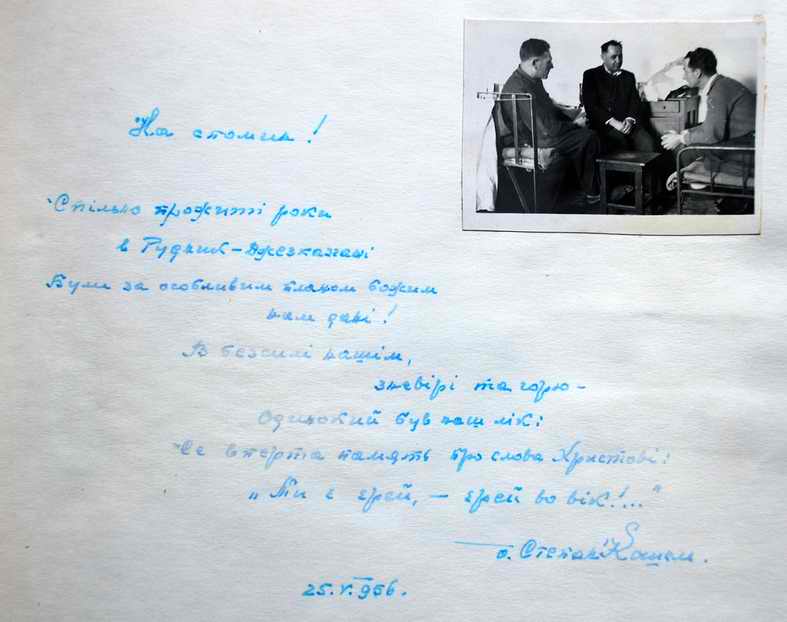 На спомин!
Спільно прожиті роки
в Рудник-Джезказгані
Були за особливим планом божим
нам дані!
В безсилі нашім,
зневірі та горю-
Одинокий був наш лік:
Се вперта память про слова Христові:
„Ти є єрей, – єрей во вік!..."
о. Степан
25.V.956.